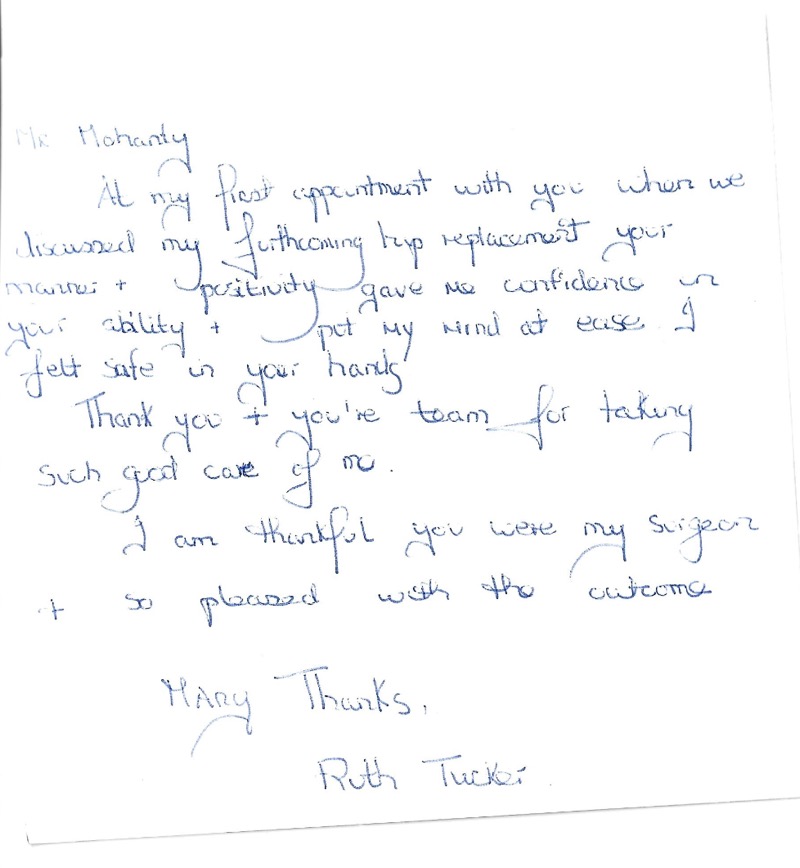 Mr Mohanty
At my first appointment with you when we
discussed my forthcoming hip replacement your
manner + positivity gave me confidence in
your ability + put my mind at ease I
felt safe in your hands
Thank you + you're team for taking
such good care of me.
I am thankful you were my surgeon
+ so pleased with the outcome
Many Thanks,
Ruth Tucker